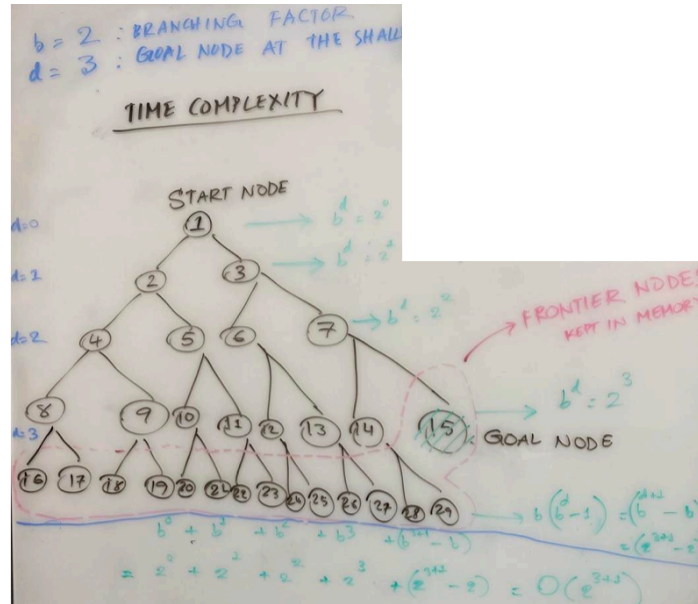 b = 2 : BRANCHING FACTOR
d = 3 : GOAL NODE AT THE SHALL
TIME COMPLEXITY
START NODE
d=0 1 → b^d = 2^0
d=1 2 3 → b^d = 2^1
d=2 4 5 6 7 → b^d = 2^2
FRONTIER NODES
KEPT IN MEMOR
8 9 10 11 12 13 14 15 → b^d = 2^3
d=3 GOAL NODE
16 17 18 19 20 21 22 23 24 25 26 27 28 29 → b(b^d - 1) = (b^d+1 - b
= (2^3+1 - 2
b^0 + b^1 + b^2 + b^3 + (b^3+1 - b)
= 2^0 + 2^1 + 2^2 + 2^3 + (2^3+1 - 2) = O(2^3+1)